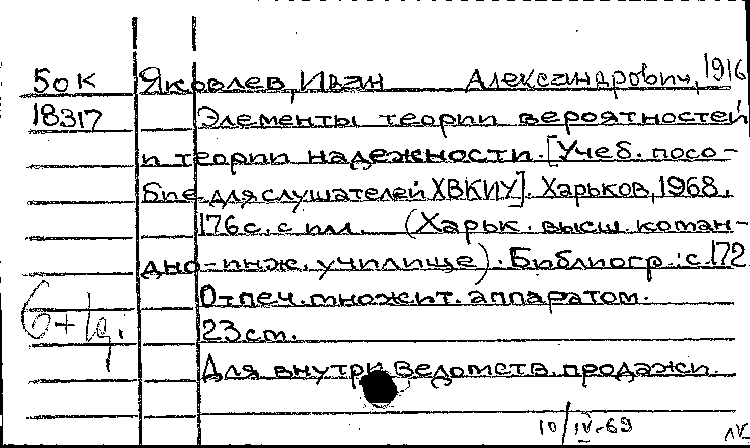 50К Яковлев, Иван Александрович, 1916
18317 Элементы теории вероятностей
и теории надежности. [Учеб. посо-
бие для слушателей ХВКИУ]. Харьков, 1968.
176 с. с илл. (Харьк. высш. коман-
дно-инж. училище). Библиогр.: с. 172
Отпеч. множит. аппаратом.
23 см.
Для внутриведомств. продажи.
10/IV-69